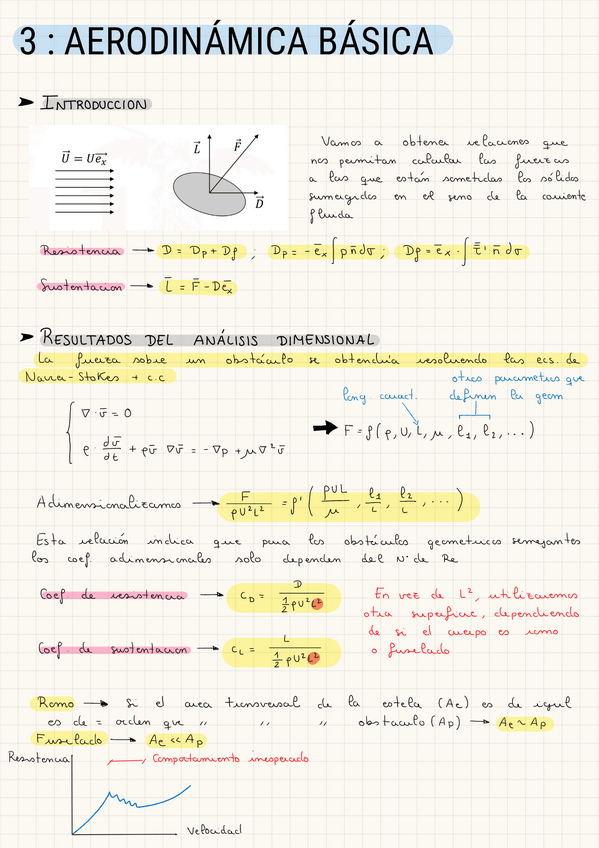 3 : AERODINÁMICA BÁSICA
➤ INTRODUCCION
U⃗ = Ue⃗ₓ
L⃗
F⃗
D⃗
Vamos a obtener relaciones que
nos permitan calcular las fuerzas
a las que están sometidas los sólidos
sumergidos en el seno de la corriente
fluida
Resistencia → D = Dp + Df ; Dp = -e̅ₓ ∫ p n̅ dσ ; Df = e̅ₓ · ∫ τ̿' n̅ dσ
Sustentacion → L̅ = F̅ - De̅ₓ
➤ RESULTADOS DEL ANÁLISIS DIMENSIONAL
La fuerza sobre un obstáculo se obtendría resolviendo las ecs. de
Navier-Stokes + c.c
otros parametros que
long caract. definen la geom
∇ · v̅ = 0
ρ · dv̅/dt + ρv̅ ∇v̅ = -∇p + μ∇²v̅
➡ F = f(ρ, U, L, μ, l₁, l₂, ...)
Adimensionalizamos → F/ρU²L² = f'(ρUL/μ, l₁/L, l₂/L, ...)
Esta relación indica que para los obstáculos geometricos semejantes
los coef. adimensionales solo dependen del Nº de Re
Coef de resistencia → C_D = D / ½ρU²L²
Coef de sustentacion → C_L = L / ½ρU²L²
En vez de L², utilizaremos
otra superficie, dependiendo
de si el cuerpo es romo
o fuselado
Romo → si el area transversal de la estela (Ae) es de igul
es de = orden que " " " obstaculo (Ap) → Ae ~ Ap
Fuselado → Ae << Ap
Resistencia
Comportamiento inesperado
Velocidad